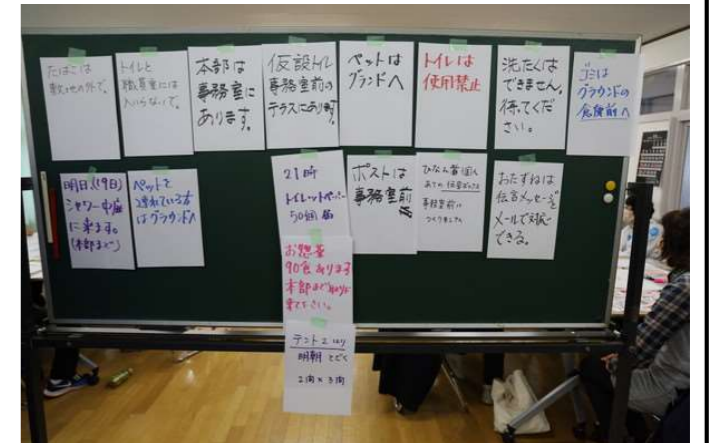 たばこは
敷地の外で。
トイレと
職員室には
入らないで。
本部は
事務室に
あります。
仮設トイレ
事務室前の
テラスにあります。
ペットは
グランドへ
トイレは
使用禁止
洗たくは
できません。
待ってくだ
さい。
ゴミは
グラウンドの
倉庫前へ
明日(19日)
シャワー中庭
に来ます。
(本部まで)
ペットを
連れている方
はグラウンドへ
21時
トイレットペーパー
50個 着
ポストは
事務室前
個人
あての伝言ボックス
事務室前に
つくりました
おたずねは
伝言メッセージを
メールで対応
できる。
お惣菜
90食あります
本部まで取りに
来て下さい。
テント2
明朝 とどく
2間×3間